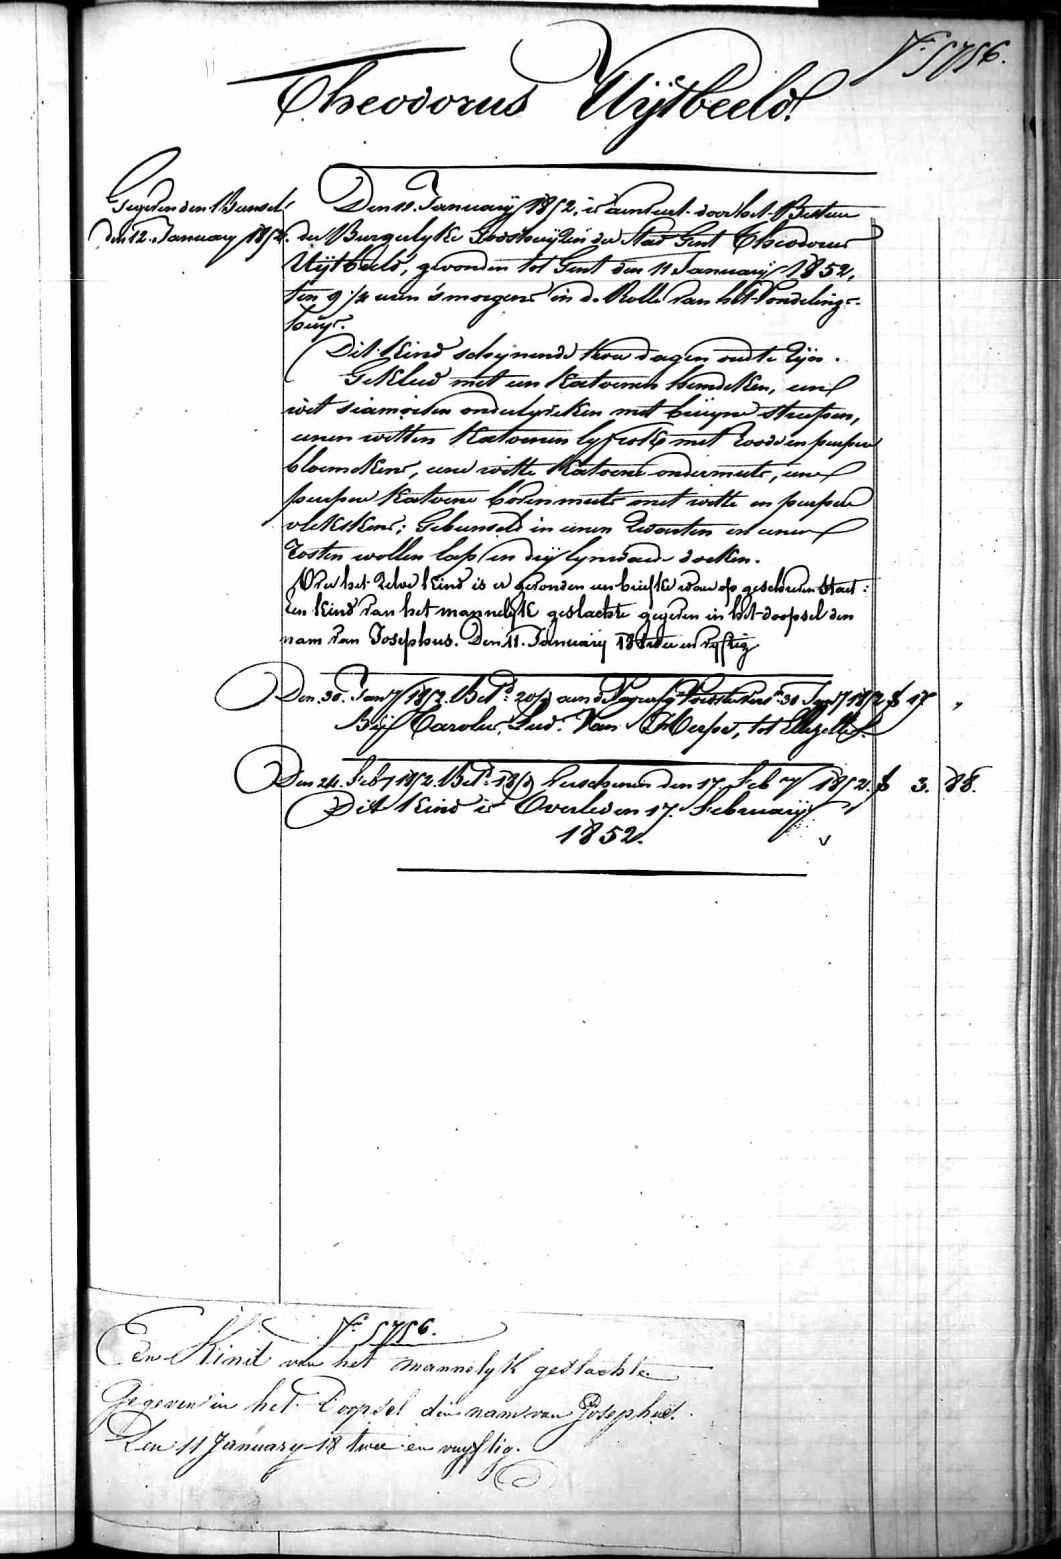 N° 5756.
Theodorus Uijtbeeld.
Gegeven den Bunsel
den 12. January 1852.
Den 11. January 1852, is aenveert door het Bestuer
der Burgerlyke Godshuyzen der Stad Gent Theodorus
Uijtbeeld, gevonden tot Gent den 11 January 1852,
ten 9 1/2 uren 'smorgens in de Rolle van het Vondeling-
huys.
Dit Kind schynende twee dagen oud te zyn.
Gekleed met een Katoenen hemdeken, een
wit siamoisen onderlyveken met bruyne streepen,
eenen witten Katoenen lyfrok met roode en purper
bloemekens, eene witte Katoene ondermuts, eene
purper Katoene bovenmuts met witte en purper
vlekskens; Gebunseld in eenen zwarten en eenen
rosten wollen lap en dry lynwaede doeken.
Over het zelve Kind is er gevonden een briefke waer op geschreven Staet:
Een Kind van het mannelyk geslachte gegeven in het doopsel den
naem van Josephus. Den 11. January 18 twee en vyftig
Den 30. Jany 1852. Bet. 20/ aen de 31 Jany 1852 £ 17 "
Bij Carolus Lud. Van Herpe, tot Elizelle.
Den 24. Feby 1852. Bet. 18/ verschenen den 17. Feby 1852. £ 3. 88.
Dit Kind is Overleden 17. February
1852.
N° 5756.
Een Kind van het mannelyk geslachte
Gegeven in het Doopsel den naem van Josephus.
Den 11 January 18 twee en vuyftig.